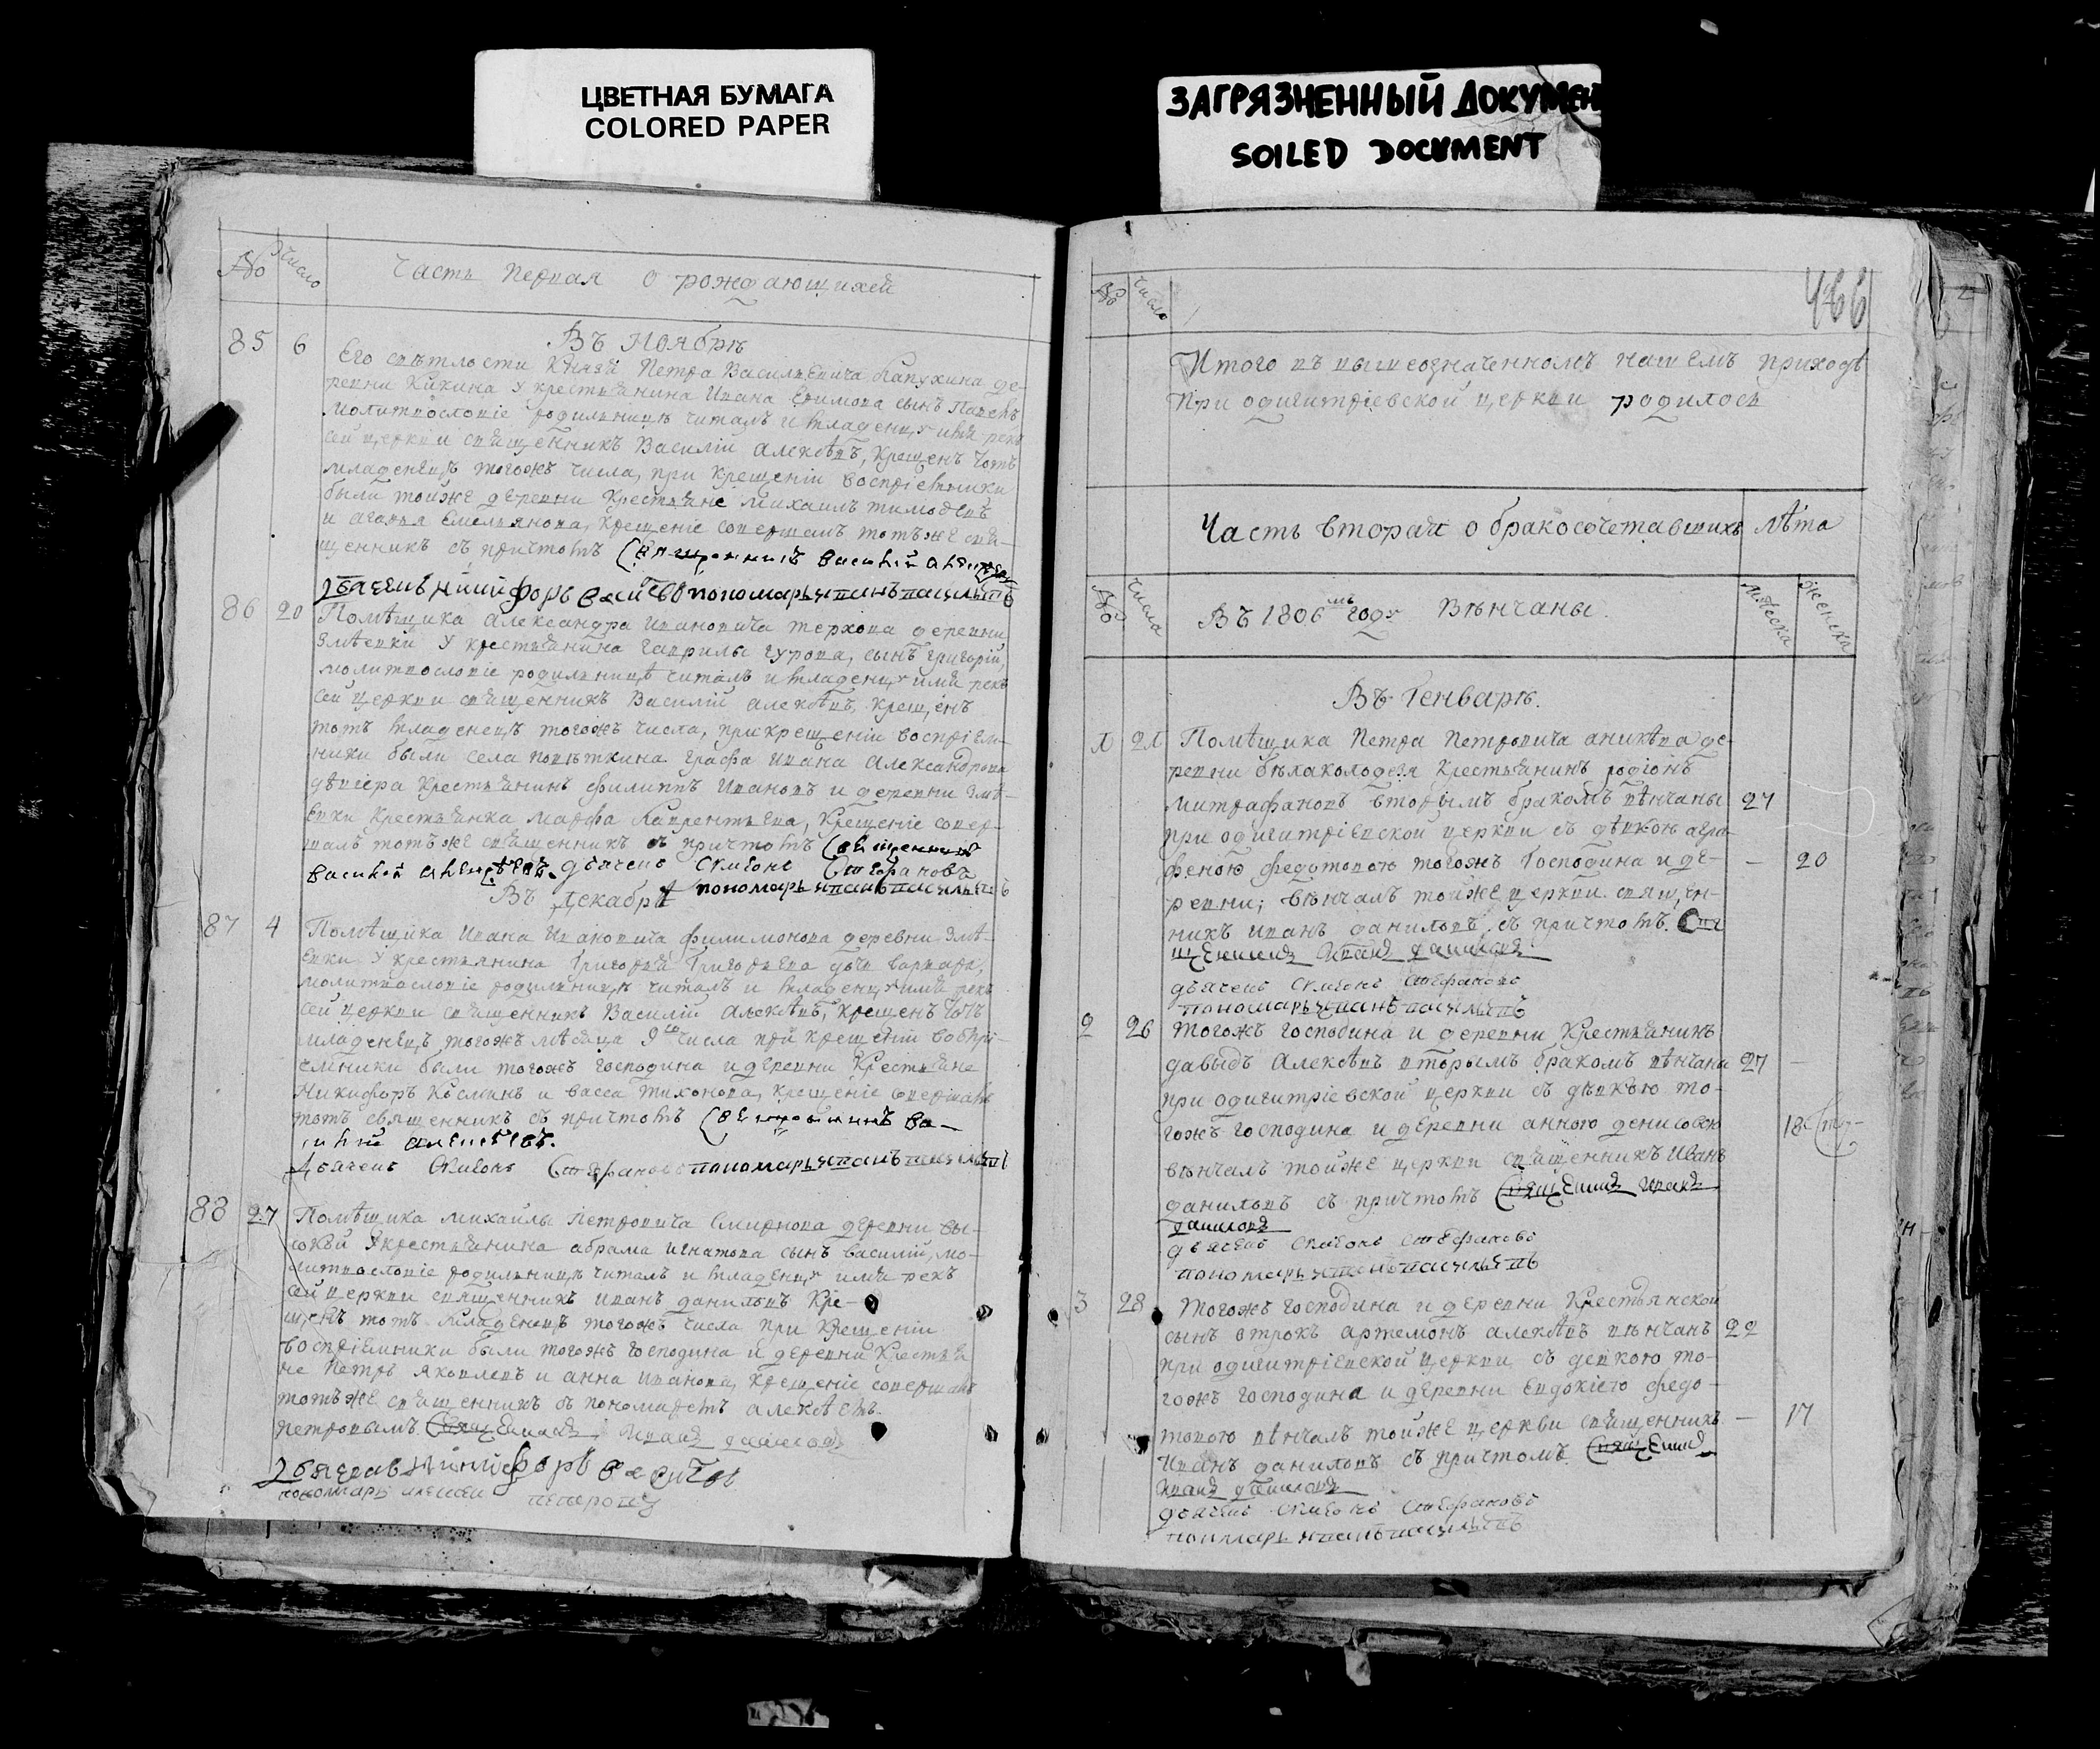 ЦВЕТНАЯ БУМАГА
COLORED PAPER
ЗАГРЯЗНЕННЫЙ ДОКУМЕН
SOILED DOCUMENT
№ число Часть первая о рождающихся
Въ Ноябрѣ
85 6 Его свѣтлости Князя Петра Васильевича Лапухина де-
ревни Кикина у крестьянина Ивана Ефимова сынъ
молитвословіе родильницѣ читалъ и младенцу имя рекъ
сей церкви священникъ Василій Алексѣевъ, крещенъ тотъ
младенецъ тогожъ числа, при крещеніи воспріемники
были тойже деревни крестьяне Михаилъ Тимофеевъ
и Агафья Емельянова, крещеніе совершалъ тотъже свя-
щенникъ съ причтомъ (Священникъ Василій
дьячекъ Никифоръ пономарь иванъ васильевъ
86 20 Помѣщика Александра Ивановича Терхова деревни
Змѣевки у крестьянина Гаврилы Гурова, сынъ Григорій,
молитвословіе родильницѣ читалъ и младенцу имя рекъ
сей церкви священникъ Василій Алексѣевъ, крещенъ
тотъ младенецъ тогожъ числа, при крещеніи воспріем-
ники были села графа Ивана Александрова
крестьянинъ Филиппъ Ивановъ и деревни Змѣ-
евки крестьянка Марфа Лаврентьева, крещеніе совер-
шалъ тотъже священникъ съ причтомъ (священникъ
василій алексѣевъ. дьячекъ Симеонъ Стефановъ
пономарь иванъ васильевъ
Въ Декабрѣ
87 4 Помѣщика Ивана Ивановича Филимонова деревни Змѣ-
евки у крестьянина Григорья Григорьева дчь Варвара,
молитвословіе родильницѣ читалъ и младенцу имя рекъ
сей церкви священникъ Василій Алексѣевъ, крещенъ тотъ
младенецъ тогожъ мѣсяца 9го числа при крещеніи воспрі-
емники были тогожъ господина и деревни крестьяне
Никифоръ Косминъ и Васса Тихонова, крещеніе совершалъ
тотъ священникъ съ причтомъ (священникъ ва-
силій алексѣевъ.
Дьячекъ Симеонъ Стефановъ пономарь иванъ васильевъ
88 27 Помѣщика Михайлы Петровича Смирнова деревни Вы-
сокой у крестьянина Абрама Игнатова сынъ Василій, мо-
литвословіе родильницѣ читалъ и младенцу имя рекъ
сей церкви священникъ Иванъ Даниловъ кре-
щенъ тотъ младенецъ тогожъ числа при крещеніи
воспріемники были тогожъ господина и деревни крестья
не Петръ Яковлевъ и Анна Иванова, крещеніе совершалъ
тотъже священникъ съ пономаремъ Алексѣемъ
Петровымъ. Священникъ Иванъ Даниловъ
дьячекъ Никифоръ
пономарь алексей петровъ
466
№ число
Итого въ вышеозначенномъ нашемъ приходѣ
при одигитріевской церкви родилось
Часть вторая о бракосочетавшихъ лѣта
№ числа Въ 1806мъ году Вѣнчаны. мужеска женска
Въ Генварѣ.
1 21 Помѣщика Петра Петровича Аникѣева де-
ревни Бѣлаколодезя крестьянинъ Родіонъ
Митрафановъ вторымъ бракомъ вѣнчаны 27
при одигитріевской церкви съ дѣвкою Агра-
феною Федотовою тогожъ господина и де- — 20
ревни; вѣнчалъ тойже церкви священ-
никъ Иванъ Даниловъ съ причтомъ. Свя
щенникъ Иванъ Даниловъ
дьячекъ Симеонъ Стефановъ
пономарь иванъ васильевъ
2 26 Тогожъ господина и деревни крестьянинъ
Давыдъ Алексѣевъ вторымъ бракомъ вѣнчаны 27 —
при одигитріевской церкви съ дѣвкою то-
гожъ господина и деревни Анною Денисовою 18
вѣнчалъ тойже церкви священникъ Иванъ
Даниловъ съ причтомъ Священникъ Иванъ
Даниловъ
дьячекъ Симеонъ Стефановъ
пономарь иванъ васильевъ
3 28 Тогожъ господина и деревни крестьянской
сынъ отрокъ Артемонъ Алексѣевъ вѣнчанъ 22
при одигитріевской церкви съ девкою то-
гожъ господина и деревни Евдокіею Федо-
товою вѣнчалъ тойже церкви священникъ — 17
Иванъ Даниловъ съ причтомъ. Священникъ
Иванъ Даниловъ
дьячекъ Симеонъ Стефановъ
пономарь иванъ васильевъ